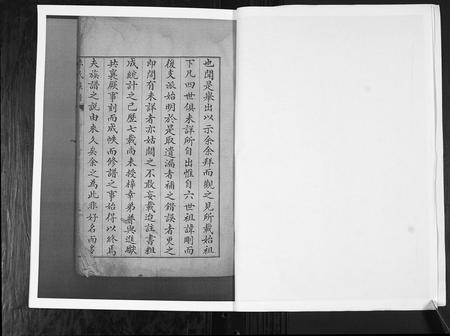 也閒是舉出以示余余拜而觀之見所載始祖
下凡四世俱未詳所自出惟自六世祖諱剛而
後支派始明於是取遺漏者補之錯誤者更之
即間有未詳者亦姑闕之不敢妄載迨註書粗
成統計之已歷七載尚未授梓幸弟普與進猷
共襄厥事刻而成帙而修譜之事始得以終焉
夫族譜之說由來久矣余之為此非好名而多